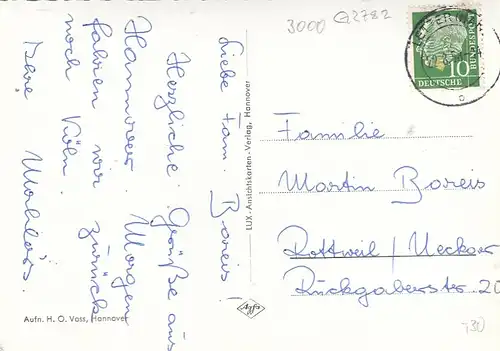 3000 G2782
Liebe Fam. Boreis!
Herzliche Grüße aus
Hannover. Morgen
fahren wir zurück
nach Köln.
Ihre
LUX-Ansichtskarten-Verlag, Hannover
Aufn. H. O. Voss, Hannover
Agfa
DEUTSCHE
BUNDESPOST
10
Familie
Martin Boreis
Rottweil / Neckar
20
730